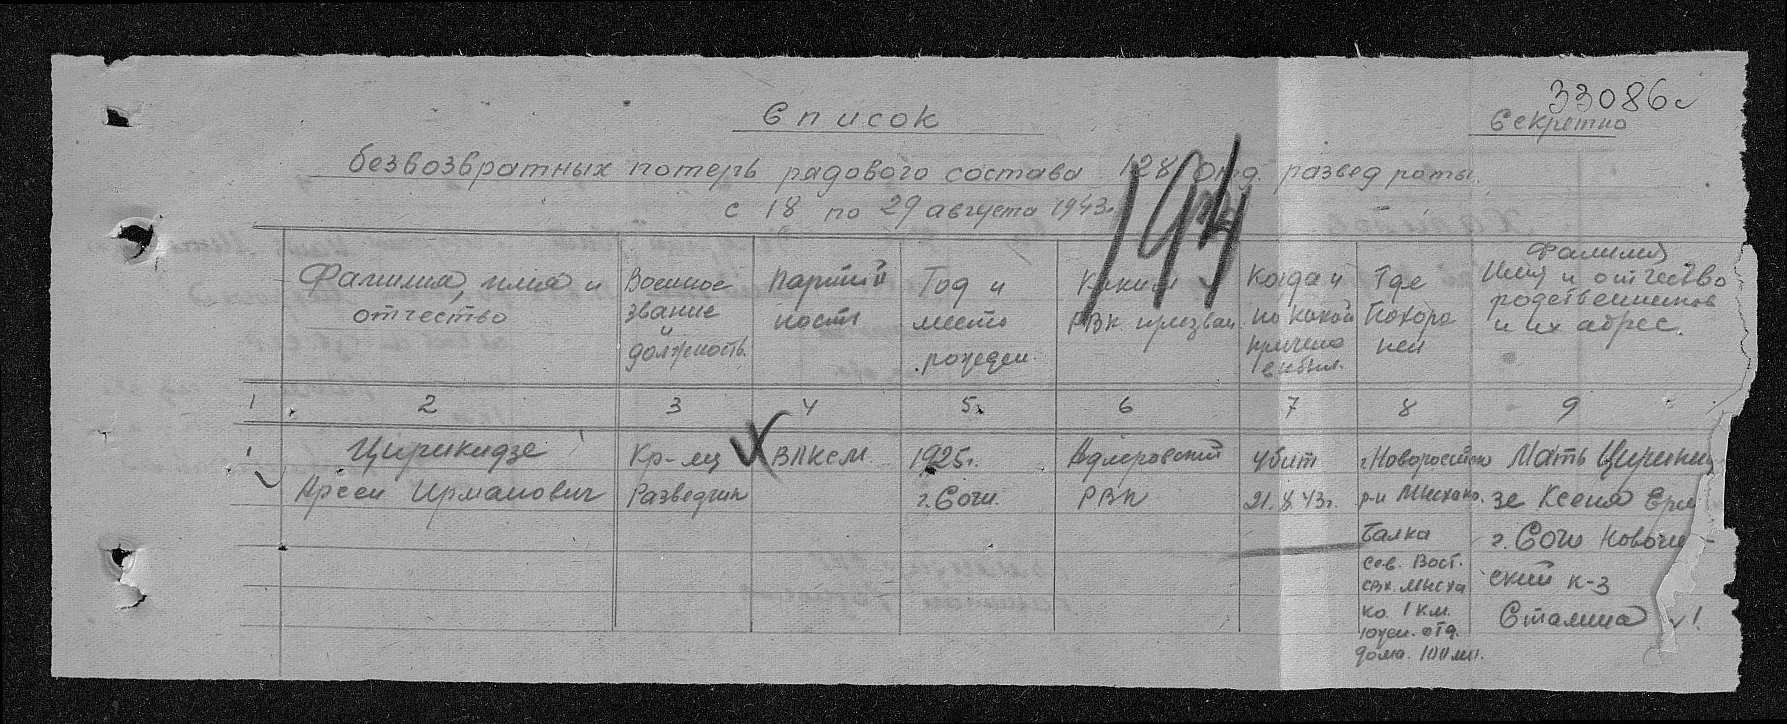 33086с
Секретно
Список
безвозвратных потерь рядового состава 128 отд. развед роты.
с 18 по 29 августа 1943г.
194
Фамилия, имя и
отчество
Военное
звание
должность
Партий
ность
Год и
место
рожден.
Каким
РВК призван
Когда и
по какой
причине
выбыл.
Где
Похоро
нен
Фамилия
Имя и отчество
родственников
и их адрес.
1 2 3 4 5 6 7 8 9
1
Цирикидзе
Арсен Ирманович
Кр-ец
Разведчик
ВЛКСМ
1925г.
г. Сочи.
Адлеровский
РВК
убит
21.8.43г.
г. Новороссийск
р-н Мысхако.
Балка
сев. Вост.
свх. Мысха
ко. 1 км.
южн. отд.
дома. 100 мт.
Мать Цирикид
зе Ксения
г. Сочи
ский к-з
Сталина